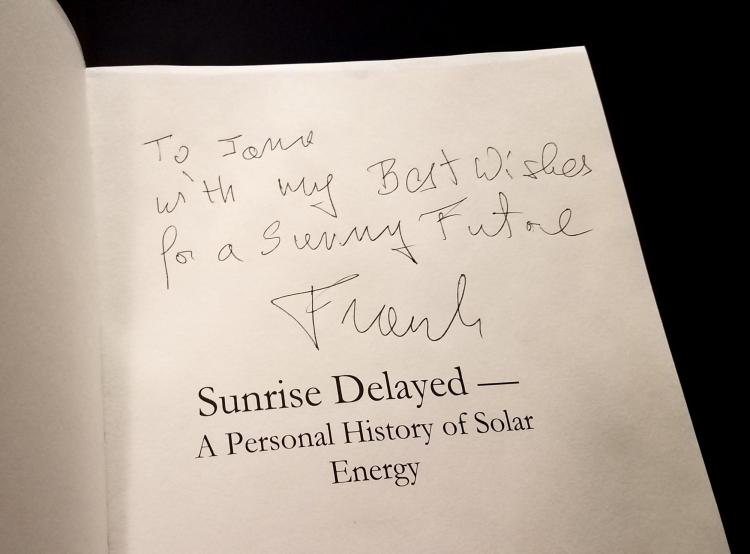 To
with my Best Wishes
for a Sunny Future
Frank
Sunrise Delayed —
A Personal History of Solar
Energy